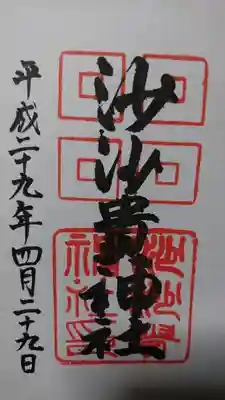 沙沙貴神社
平成二十九年四月二十九日